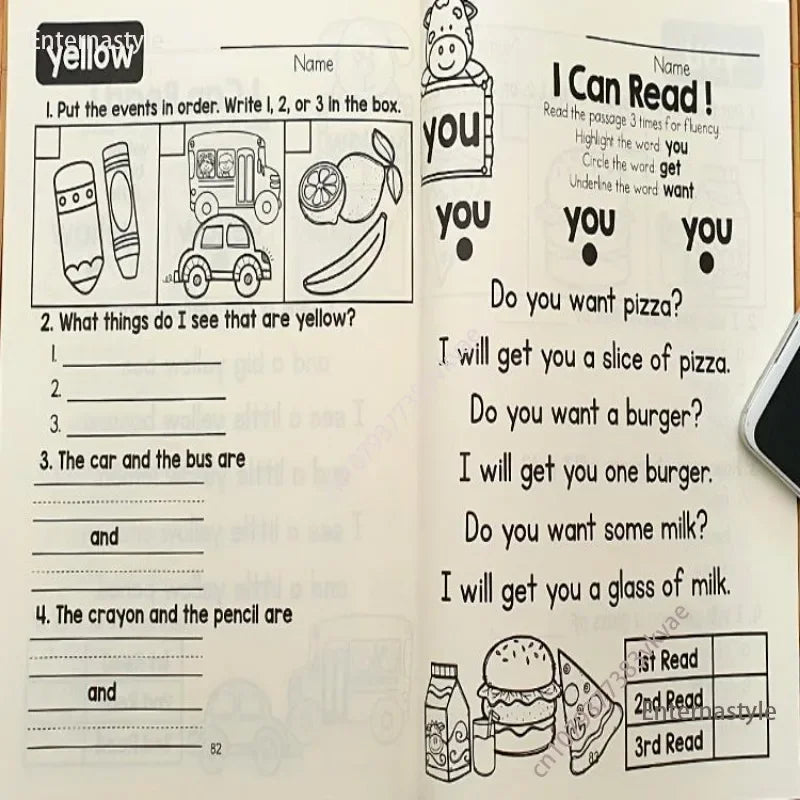 Enternastyle
yellow
Name
1. Put the events in order. Write 1, 2, or 3 in the box.
2. What things do I see that are yellow?
1.
2.
3.
3. The car and the bus are
and
4. The crayon and the pencil are
and
82
Name
I Can Read!
Read the passage 3 times for fluency.
Highlight the word you
Circle the word get
Underline the word want
you
you you you
Do you want pizza?
I will get you a slice of pizza.
Do you want a burger?
I will get you one burger.
Do you want some milk?
I will get you a glass of milk.
1st Read
2nd Read
3rd Read
Enternastyle
83